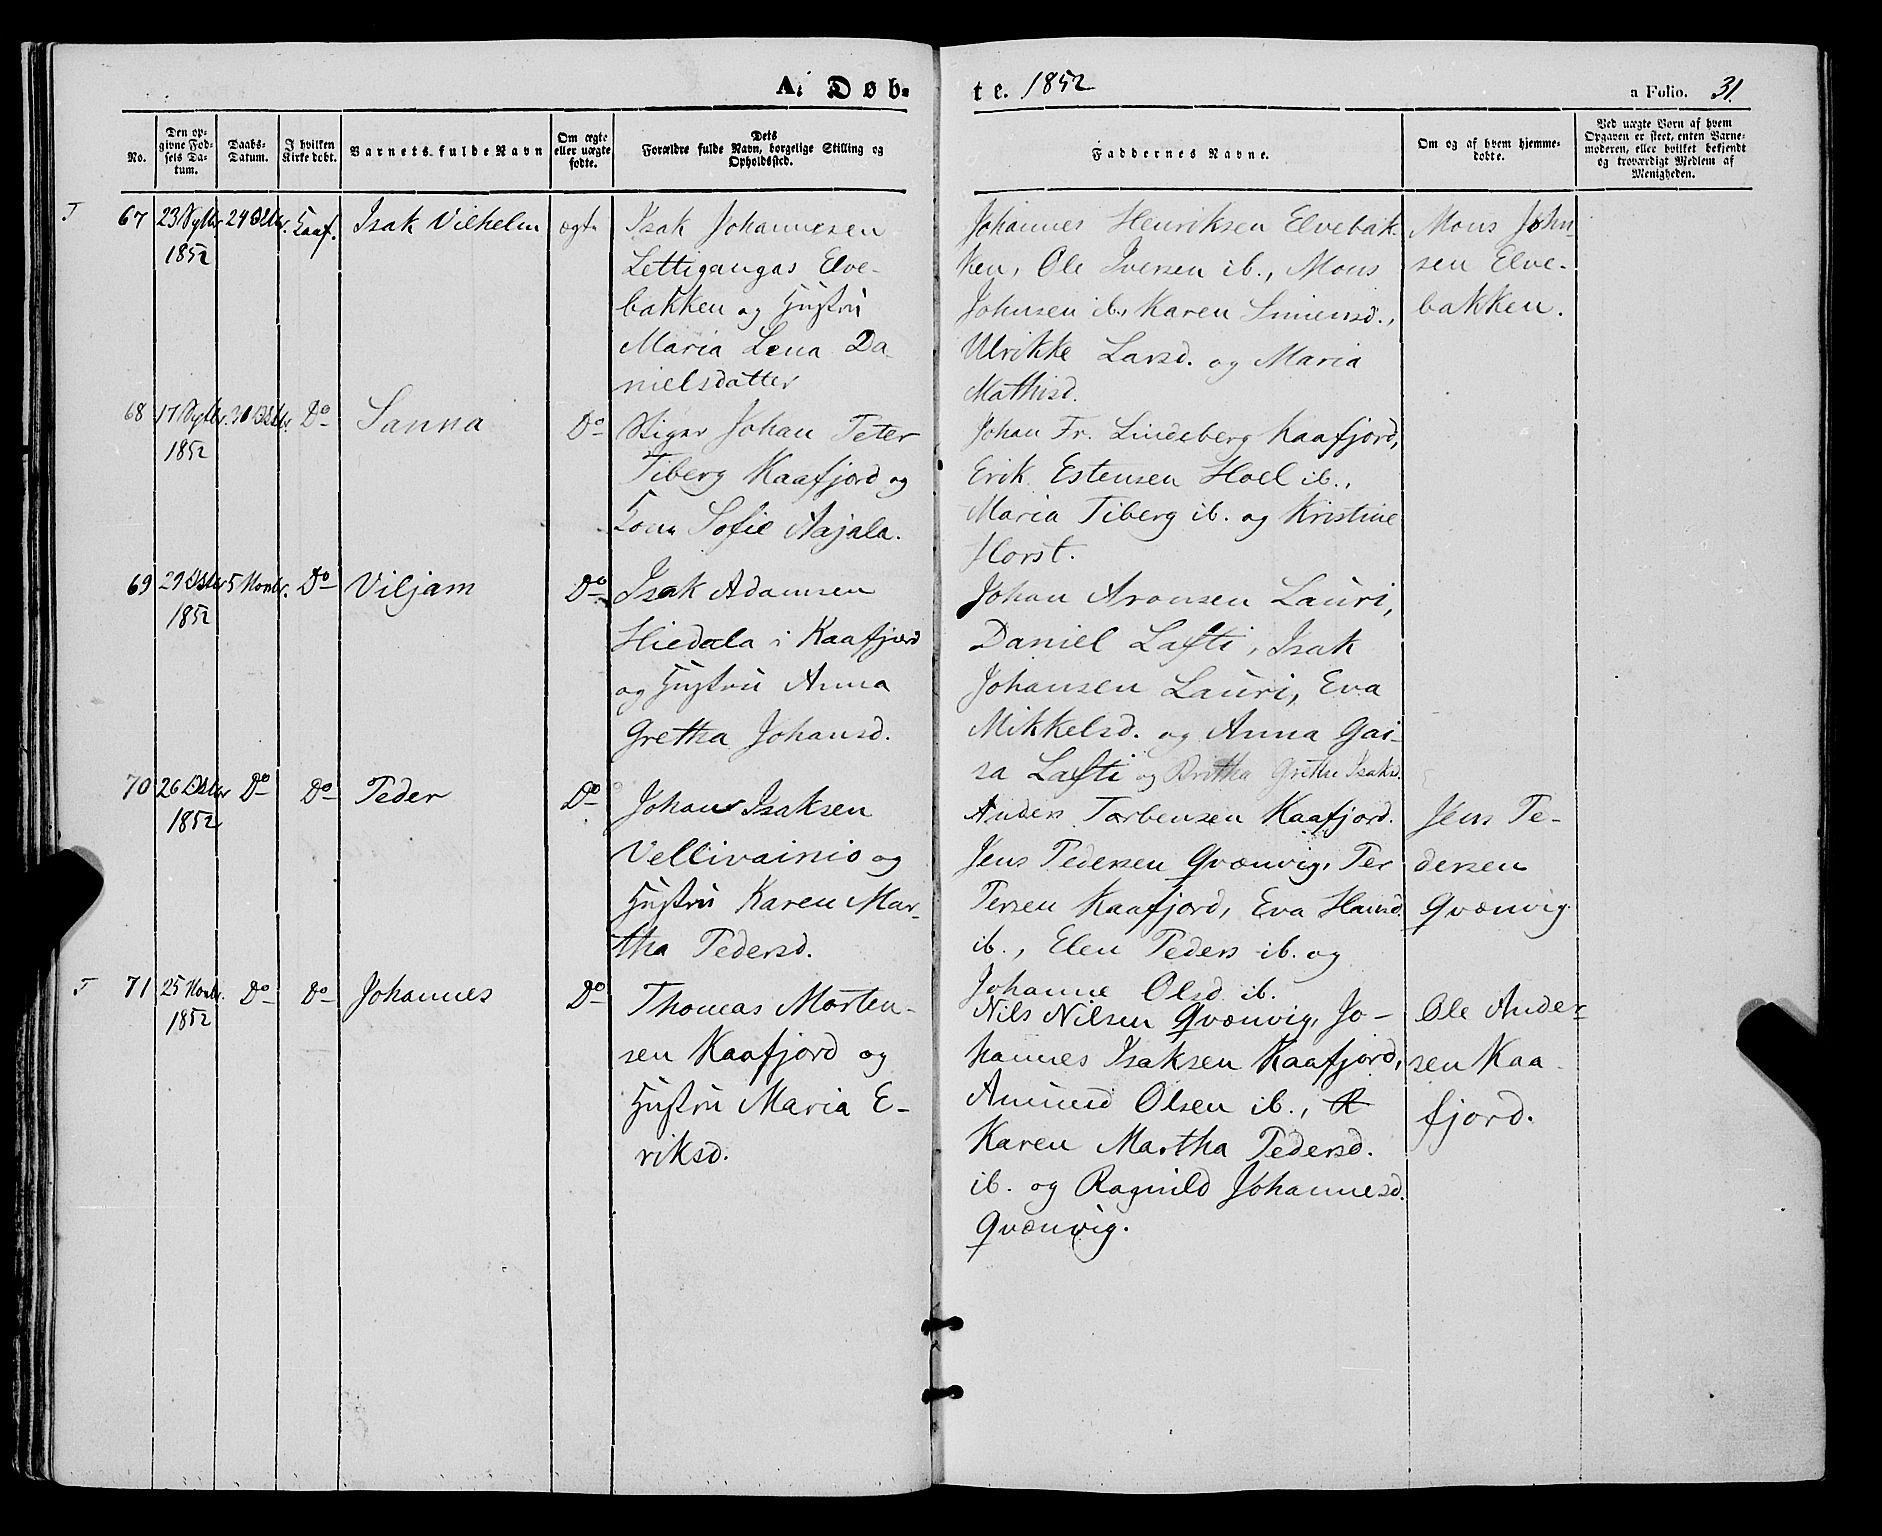 A. Døb-
te. 1852
a Folio. 31.
No.
Den op-
givne Fød-
sels Da-
tum.
Daabs-
Datum.
I hvilken
Kirke døbt.
Barnets fulde Navn
Om ægte
eller uægte
fødte.
Dets
Forældre fulde Navn, borgelige Stilling og
Opholdssted.
Faddernes Navne.
Om og af hvem hjemme-
døbte.
Ved uægte Børn af hvem
Opgaven er skeet, enten Barne-
moderen, eller hvilket bekjendt
og troværdigt Medlem af
Menigheden.
T 67 23 Sptbr 24 Oktbr. Kaaf. Isak Vilhelm ægte
1852
Isak Johannesen
Lettigangas Elve-
bakken og Hustru
Maria Lena Da-
nielsdatter
Johannes Henriksen Elvebak-
ken, Ole Iversen ib., Mons
Johnsen ib., Karen Simensd.,
Ulrikke Larsd. og Maria
Mathisd.
Mons John-
sen Elve-
bakken.
68 17 Sptbr. Oktbr. Do Sanna Do
1852
Stiger Johan Peter
Tiberg Kaafjord og
Kone Sofie Aajala.
Johan Fr. Lindeberg Kaafjord,
Erik Estensen Hoel ib.,
Maria Tiberg ib. og Kristine
Horst.
69 29 Oktbr 5 Novbr. Do Viljam Do
1852
Isak Adamsen
Hiedala i Kaafjord
og Hustru Anna
Gretha Johansd.
Johan Aronsen Lauri,
Daniel Lafti, Isak
Johansen Lauri, Eva
Mikkelsd. og Anna Gai-
sa Lafti og Britha Grethe Isaksd.
70 26 Oktbr Do Do Peder Do
1852
Johan Isaksen
Vellivainio og
Hustru Karen Mar-
tha Pedersd.
Anders Torbensen Kaafjord.
Jens Pedersen Qvænvig, Per
Persen Kaafjord, Eva Hansd
ib., Elen Peders ib. og
Johanne Olsd ib.
Jens Pe-
dersen
Qvænvig.
T 71 25 Novbr. Do Do Johannes Do
1852
Thomas Morten-
sen Kaafjord og
Hustru Maria E-
riksd.
Nils Nilsen Qvænvig, Jo-
hannes Isaksen Kaafjord,
Amund Olsen ib., R
Karen Martha Pedersd.
ib. og Ragnild Johannesd.
Qvænvig.
Ole Ander-
sen Kaa-
fjord.